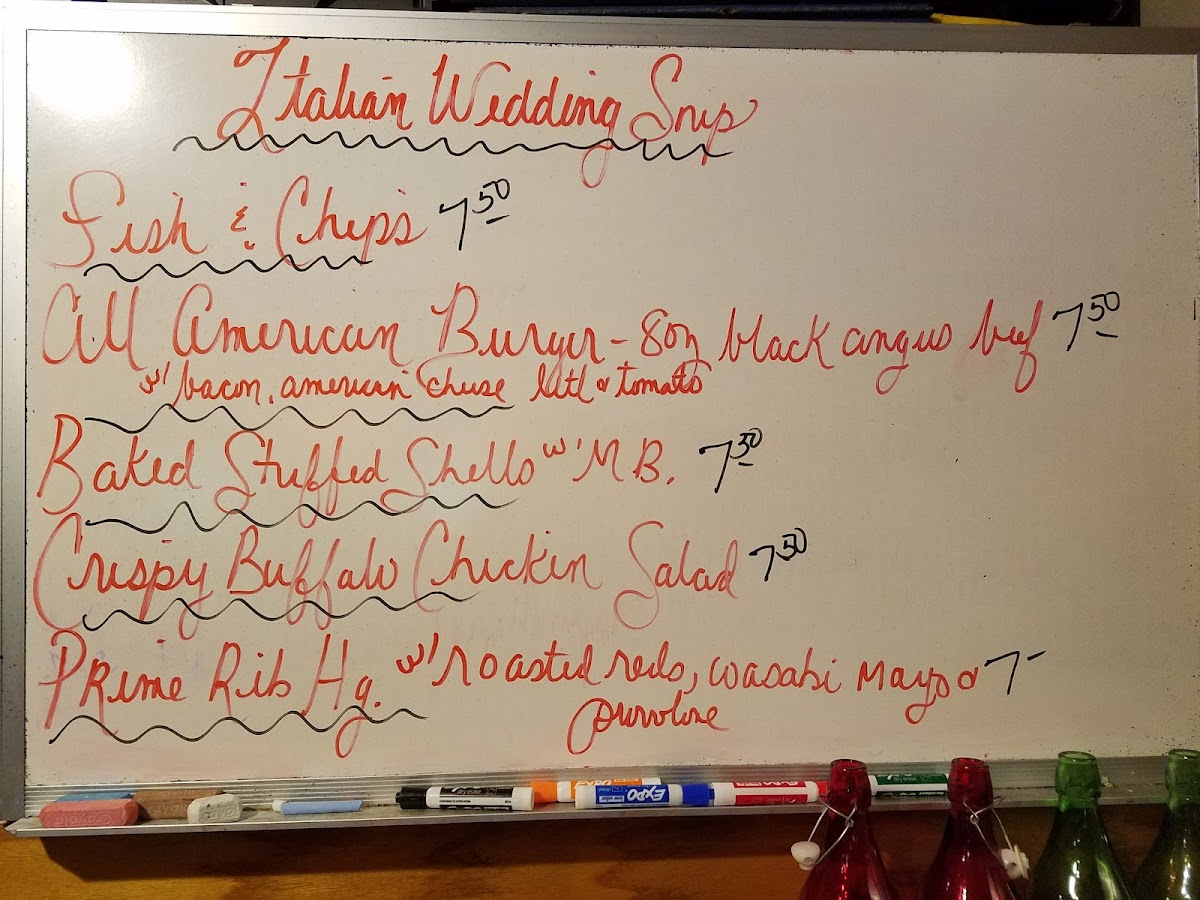 Italian Wedding Snip
Fish & Chips 7 50
All American Burger - 8oz black angus beef 7 50
w/ bacon, american cheese let & tomato
Baked Stuffed Shells w/ MB. 7 50
Crispy Buffalo Chicken Salad 7 50
Prime Rib Hg. w/ roasted reds, wasabi mayo & 7 -
provolone
EXPO